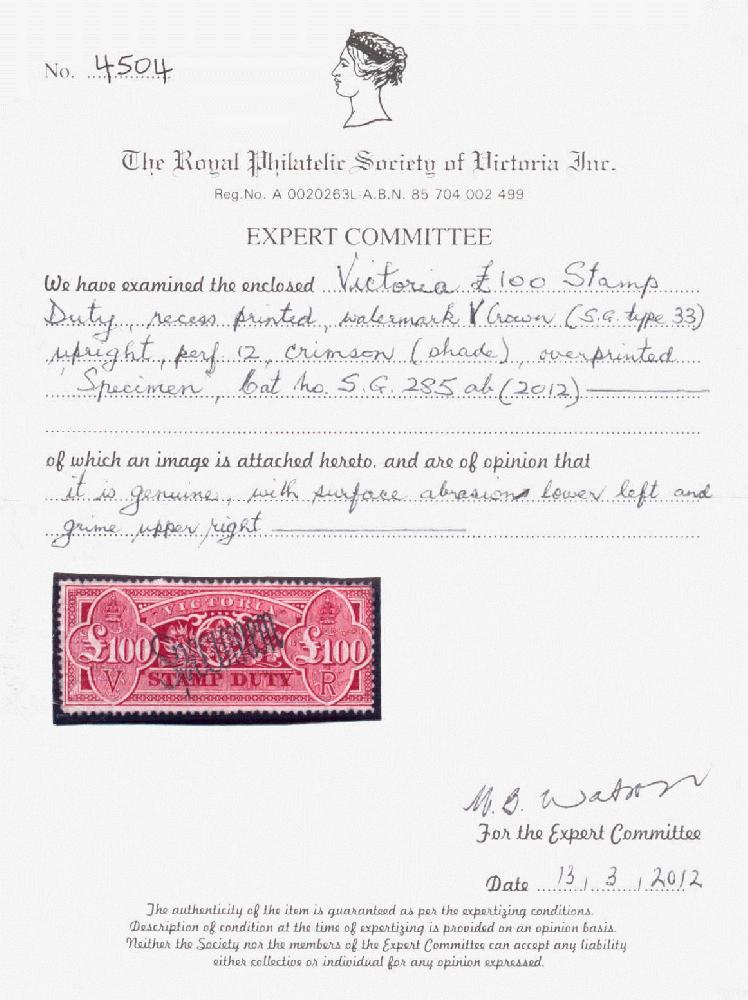 No. 4504
The Royal Philatelic Society of Victoria Inc.
Reg.No. A 0020263L-A.B.N. 85 704 002 499
EXPERT COMMITTEE
We have examined the enclosed Victoria £100 Stamp
Duty, recess printed, watermark V Crown (S.G. type 33)
upright, perf 12, crimson (shade), overprinted
'Specimen', Cat no. S.G. 285ab (2012)
of which an image is attached hereto, and are of opinion that
it is genuine, with surface abrasions lower left and
grime upper right
VICTORIA
£100 Specimen £100
V STAMP DUTY R
M. B. Watson
For the Expert Committee
Date 13 / 3 / 2012
The authenticity of the item is guaranteed as per the expertizing conditions.
Description of condition at the time of expertizing is provided on an opinion basis.
Neither the Society nor the members of the Expert Committee can accept any liability
either collective or individual for any opinion expressed.